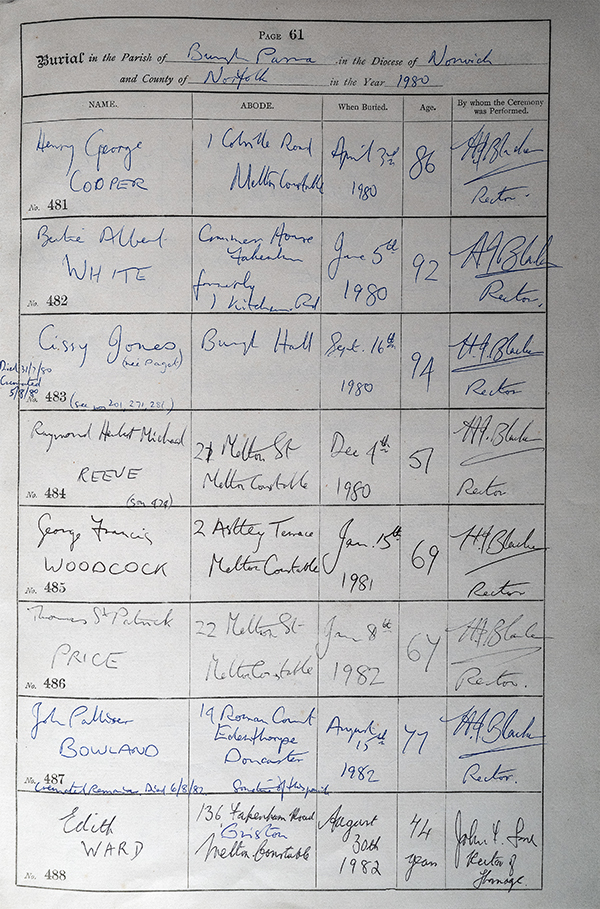 PAGE 61
Burial in the Parish of Burgh Parva in the Diocese of Norwich
and County of Norfolk in the Year 1980
NAME. ABODE. When Buried. Age. By whom the Ceremony was Performed.
Henry George
COOPER
No. 481
1 Colville Road
Melton Constable
April 3rd
1980
86
H.J. Blacker
Rector.
Bertie Albert
WHITE
No. 482
House
Fakenham
formerly
1 Rd
June 5th
1980
92
H.J. Blacker
Rector.
Cissy Jones
(née Paget)
Died 31/7/80
Cremated
5/8/80
No. 483 (see nos 201, 271, 281)
Burgh Hall
Sept. 16th
1980
94
H.J. Blacker
Rector
Raymond Herbert Michael
REEVE
No. 484
(see 479)
21 Melton St
Melton Constable
Dec 4th
1980
51
H.J. Blacker
Rector
George Francis
WOODCOCK
No. 485
2 Astley Terrace
Melton Constable
Jan. 15th
1981
69
H.J. Blacker
Rector
Thomas St Patrick
PRICE
No. 486
22 Melton St
Melton Constable
8th
1982
67
H.J. Blacker
Rector.
John Palliser
BOWLAND
No. 487
Cremated Remains. Died 6/8/82 Sometime of this parish
19 Roman Court
Edenthorpe
Doncaster
August
15th
1982
77
H.J. Blacker
Rector.
Edith
WARD
No. 488
136 Fakenham Road
Briston
Melton Constable
August
30th
1982
44
years
John
Rector of